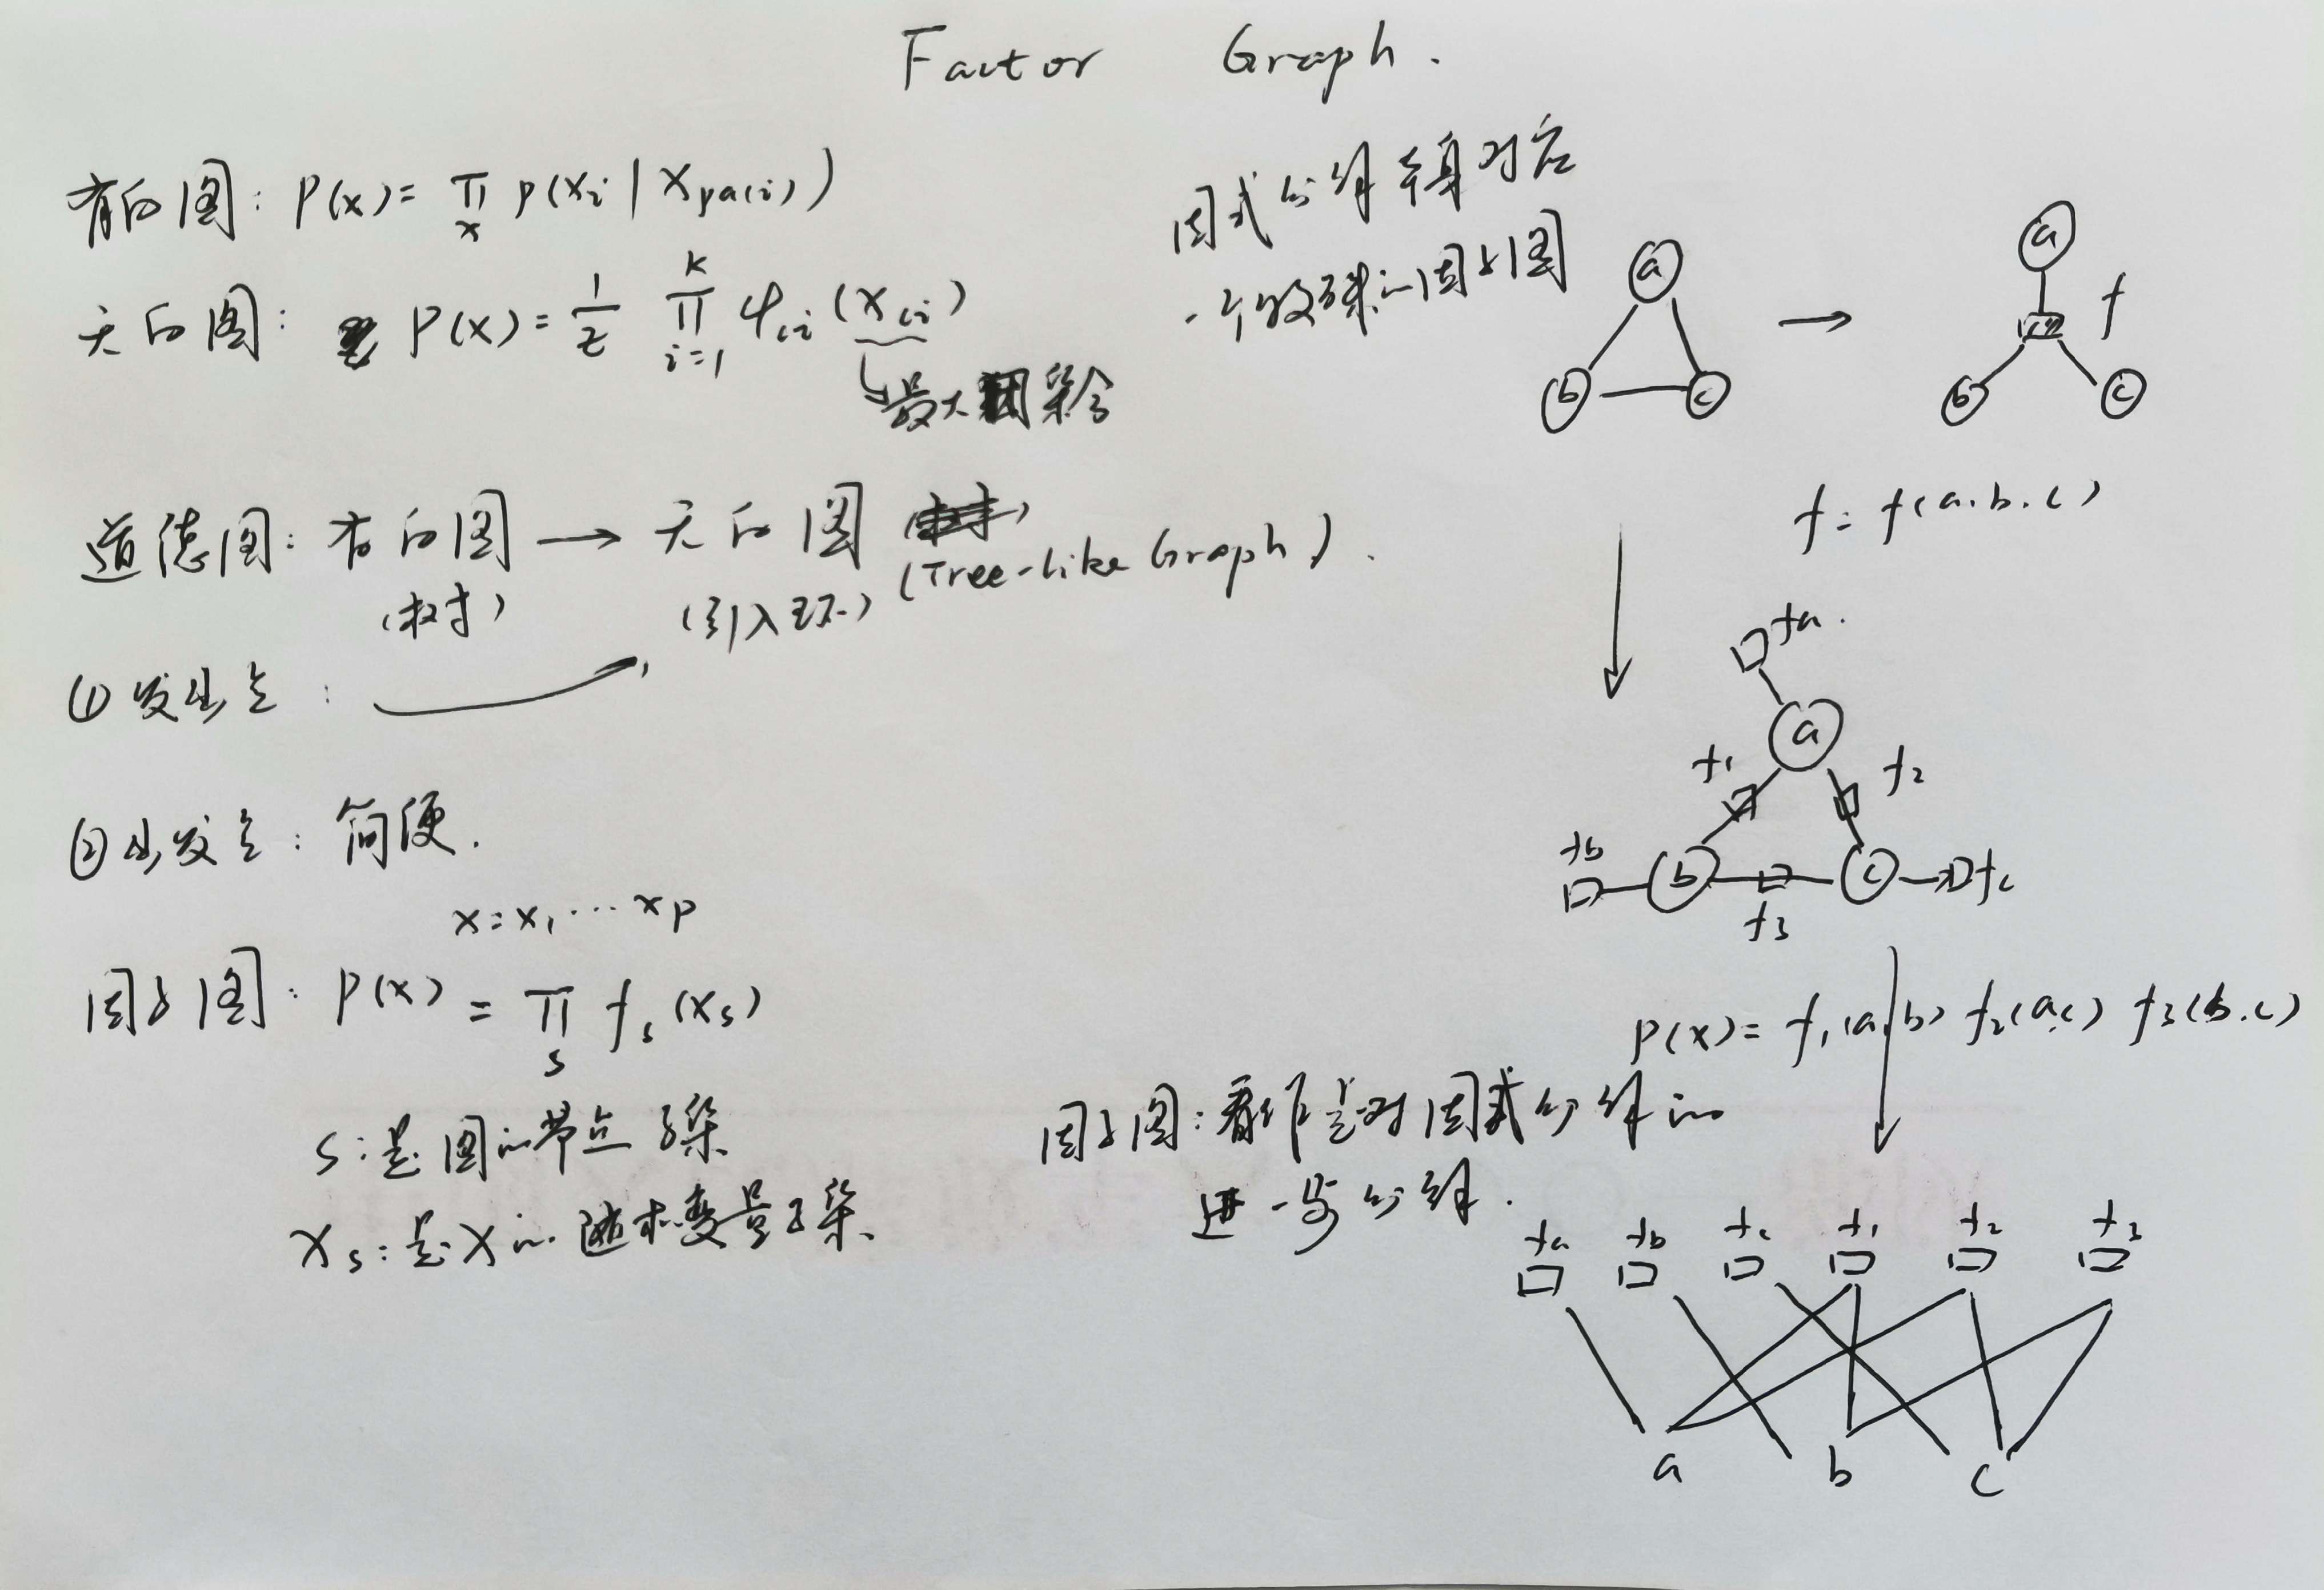 Factor Graph.
有向图: P(x)= ∏x p(xi | xpa(i))
无向图: P(x)= 1/z ∏i=1^K φci (xci)
最大团集合
道德图: 有向图 → 无向图 (Tree-like Graph).
(树)
(引入环)
① 发出点:
② 出发点: 简便.
x=x1 ... xp
因子图: P(x) = ∏s fs (xs)
s:是图的节点子集
xs:是X的随机变量子集
因式分解本身对应
一个特殊的因子图
a
b
c
→
a
f
b
c
f= f(a.b.c)
fa.
a
f1
f2
fb
b
c
fc
f3
P(x)= f1(a,b) f2(a,c) f3(b.c)
因子图: 看作是对因式分解的
进一步分解.
fa fb fc f1 f2 f3
a b c